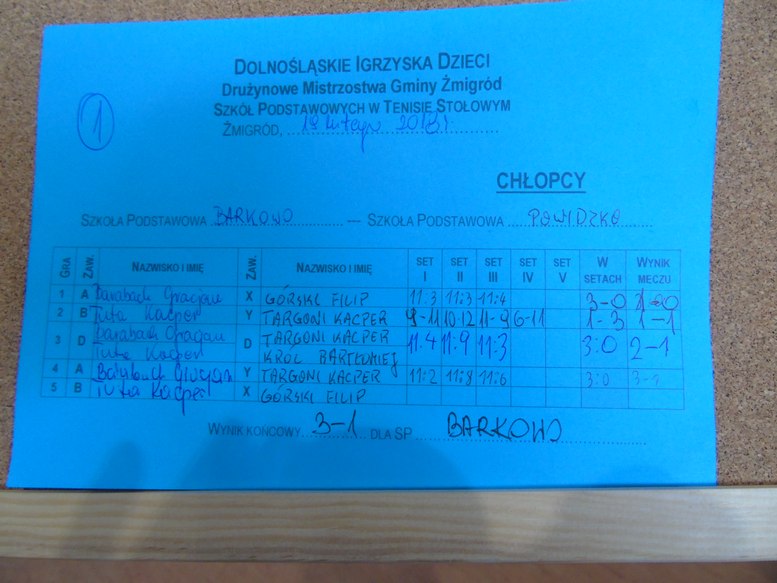 DOLNOŚLĄSKIE IGRZYSKA DZIECI
Drużynowe Mistrzostwa Gminy Żmigród
SZKÓŁ PODSTAWOWYCH W TENISIE STOŁOWYM
1
ŻMIGRÓD, 19 lutego
CHŁOPCY
SZKOŁA PODSTAWOWA BARKOWO — SZKOŁA PODSTAWOWA POWIDZKO
GRA ZAW. NAZWISKO I IMIĘ ZAW. NAZWISKO I IMIĘ SET I SET II SET III SET IV SET V W SETACH WYNIK MECZU
1 A X GÓRSKI FILIP 11:3 11:3 11:4 3-0 1-0
2 B Tuta Kacper Y TARGONI KACPER 9-11 10-12 11-9 6-11 1-3 1-1
3 D D TARGONI KACPER 11:4 11:9 11:3 3:0 2-1
Tuta Kacper KRÓL BARTŁOMIEJ
4 A Y TARGONI KACPER 11:2 11:8 11:6 3:0
5 B Tuta Kacper X GÓRSKI FILIP
WYNIK KOŃCOWY 3-1 DLA SP BARKOWO